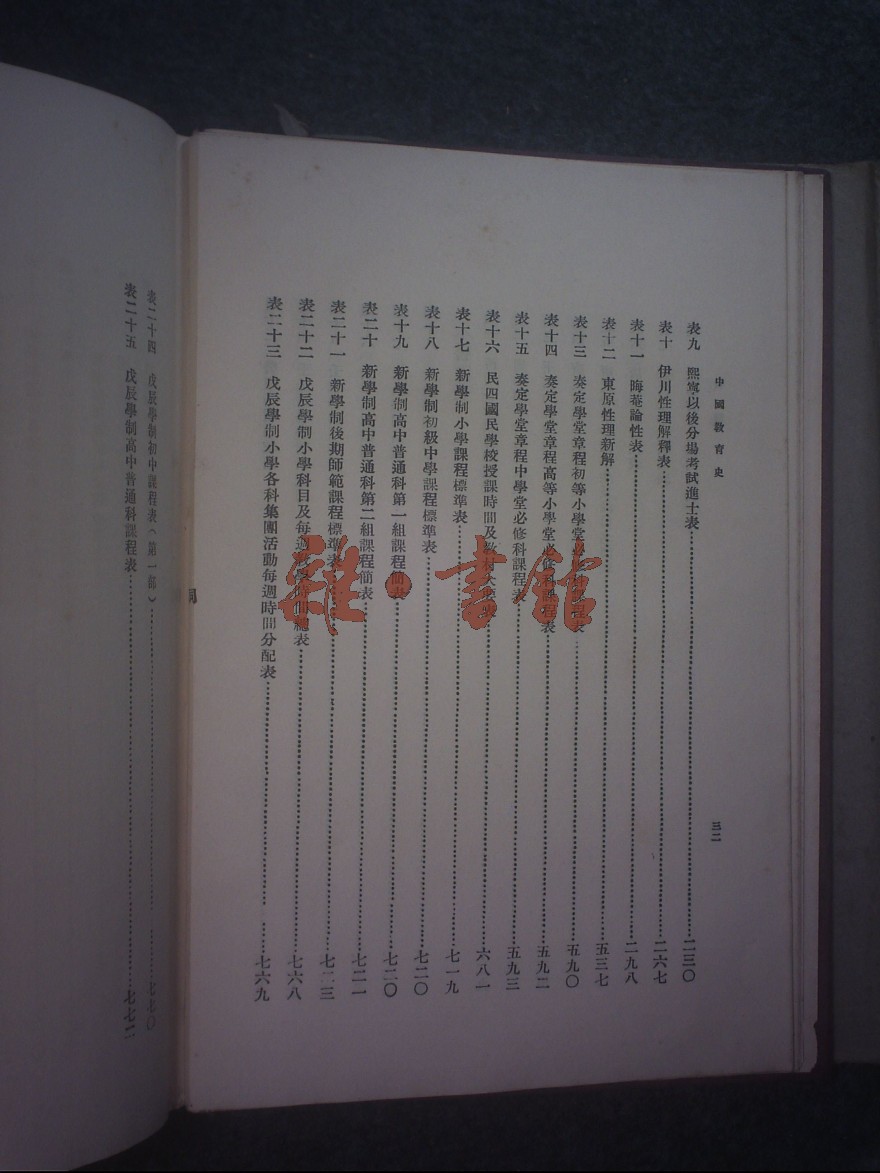 中國教育史
三二
表九　熙寧以後分場考試進士表……二三〇
表十　伊川性理解釋表……二六七
表十一　晦菴論性表……二九八
表十二　東原性理新解……五三七
表十三　奏定學堂章程初等小學堂必修科課程表……五九〇
表十四　奏定學堂章程高等小學堂必修科課程表……五九二
表十五　奏定學堂章程中學堂必修科課程表……五九三
表十六　民四國民學校授課時間及教材大要表……六八一
表十七　新學制小學課程標準表……七一九
表十八　新學制初級中學課程標準表……七二〇
表十九　新學制高中普通科第一組課程簡表……七二〇
表二十　新學制高中普通科第二組課程簡表……七二一
表二十一　新學制後期師範課程標準表……七二三
表二十二　戊辰學制小學科目及每週教學時間總表……七六八
表二十三　戊辰學制小學各科集團活動每週時間分配表……七六九
表二十四　戊辰學制初中課程表(第一部)……七七〇
表二十五　戊辰學制高中普通科課程表……七七二
雜·書館